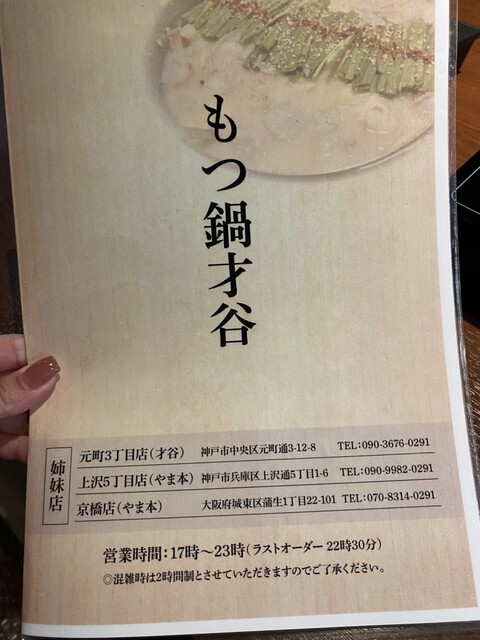 もつ鍋才谷
姉妹店
元町3丁目店（才谷） 神戸市中央区元町通3-12-8 TEL：090-3676-0291
上沢5丁目店（やま本） 神戸市兵庫区上沢通5丁目1-6 TEL：090-9982-0291
京橋店（やま本） 大阪府城東区蒲生1丁目22-101 TEL：070-8314-0291
営業時間：17時〜23時（ラストオーダー 22時30分）
◎混雑時は2時間制とさせていただきますのでご了承ください。